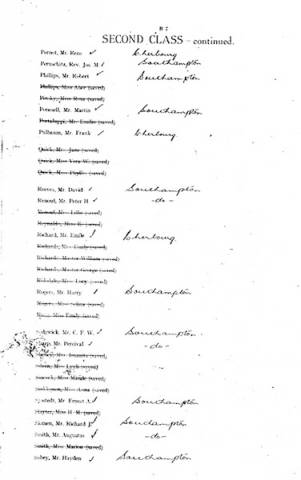 SECOND CLASS – continued.
Pernot, Mr. Rene ✓ Cherbourg
Peruschitz, Rev. Jos. M ✓ Southampton
Phillips, Mr. Robert ✓ Southampton
Phillips, Miss Alice (saved)
Pinsky, Miss Rosa (saved)
Ponesell, Mr. Martin ✓ Southampton
Portaluppi, Mr. Emilio (saved)
Pulbaum, Mr. Frank ✓ Cherbourg
Quick, Mrs. Jane (saved)
Quick, Miss Vera W. (saved)
Quick, Miss Phyllis (saved)
Reeves, Mr. David ✓ Southampton
Renouf, Mr. Peter H ✓ -do-
Renouf, Mrs. Lillie (saved)
Reynolds, Miss E. (saved)
Richard, Mr. Emile ✓ Cherbourg.
Richards, Mrs. Emily (saved)
Richards, Master William (saved)
Richards, Master George (saved)
Ridsdale, Miss Lucy (saved)
Rogers, Mr. Harry ✓ Southampton
Rogers, Miss Selina (saved)
Miss Emily (saved)
Sedgwick, Mr. C. F. W. ✓ Southampton
Sharp, Mr. Percival ✓ -do-
(saved)
(saved)
Miss Maude (saved)
Miss Anna (saved)
Sjostedt, Mr. Ernest A. ✓ Southampton
Slayter, Miss H. M. (saved)
Slemen, Mr. Richard J. ✓ Southampton
Smith, Mr. Augustus ✓ -do-
Smith, Miss Marion (saved)
Sobey, Mr. Hayden ✓ Southampton